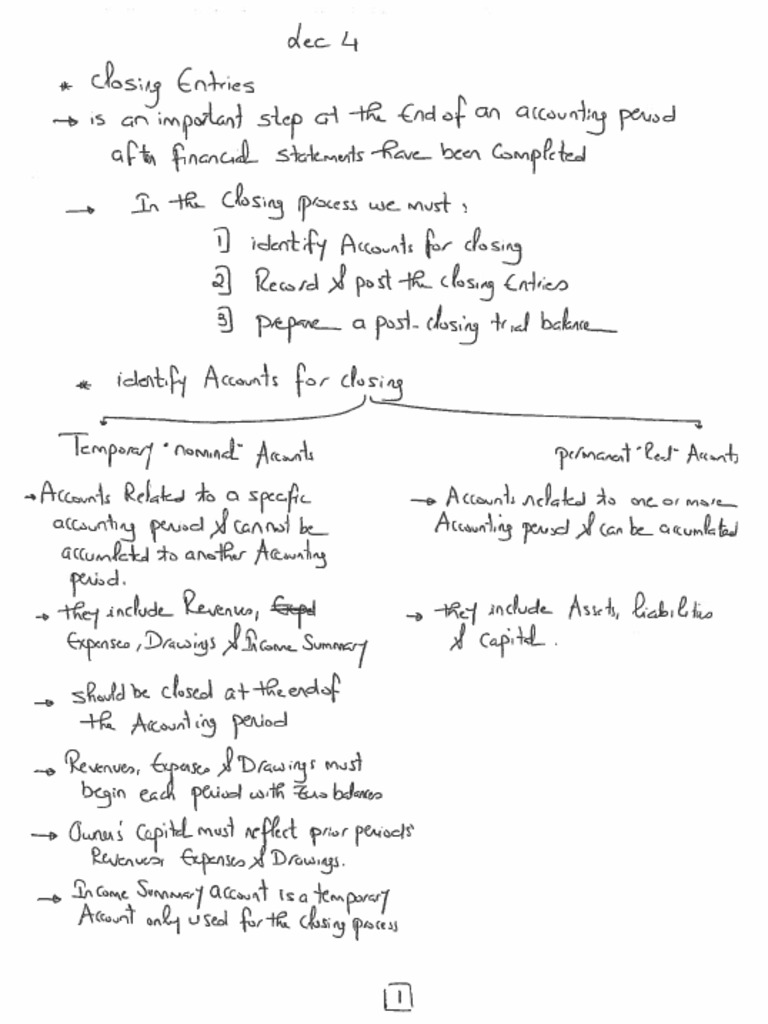 Lec 4
* Closing Entries
→ is an important step at the End of an accounting period
after financial statements have been Completed
→ In the Closing process we must :
1] identify Accounts for closing
2] Record & post the closing Entries
3] prepare a post-closing trial balance
* identify Accounts for closing
Temporary "nominal" Accounts
→ Accounts Related to a specific
accounting period & cannot be
accumlated to another Accounting
period.
→ they include Revenues, Expenses, Drawings & Income Summary
→ should be closed at the end of
the Accounting period
→ Revenues, Expenses & Drawings must
begin each period with Zero balances
→ Owner's Capital must reflect prior periods'
Revenues, Expenses & Drawings.
→ Income Summary account is a temporary
Account only used for the closing process
permanent "Real" Accounts
→ Accounts related to one or more
Accounting period & can be acumlated
→ they include Assets, liabilities
& Capital.
1